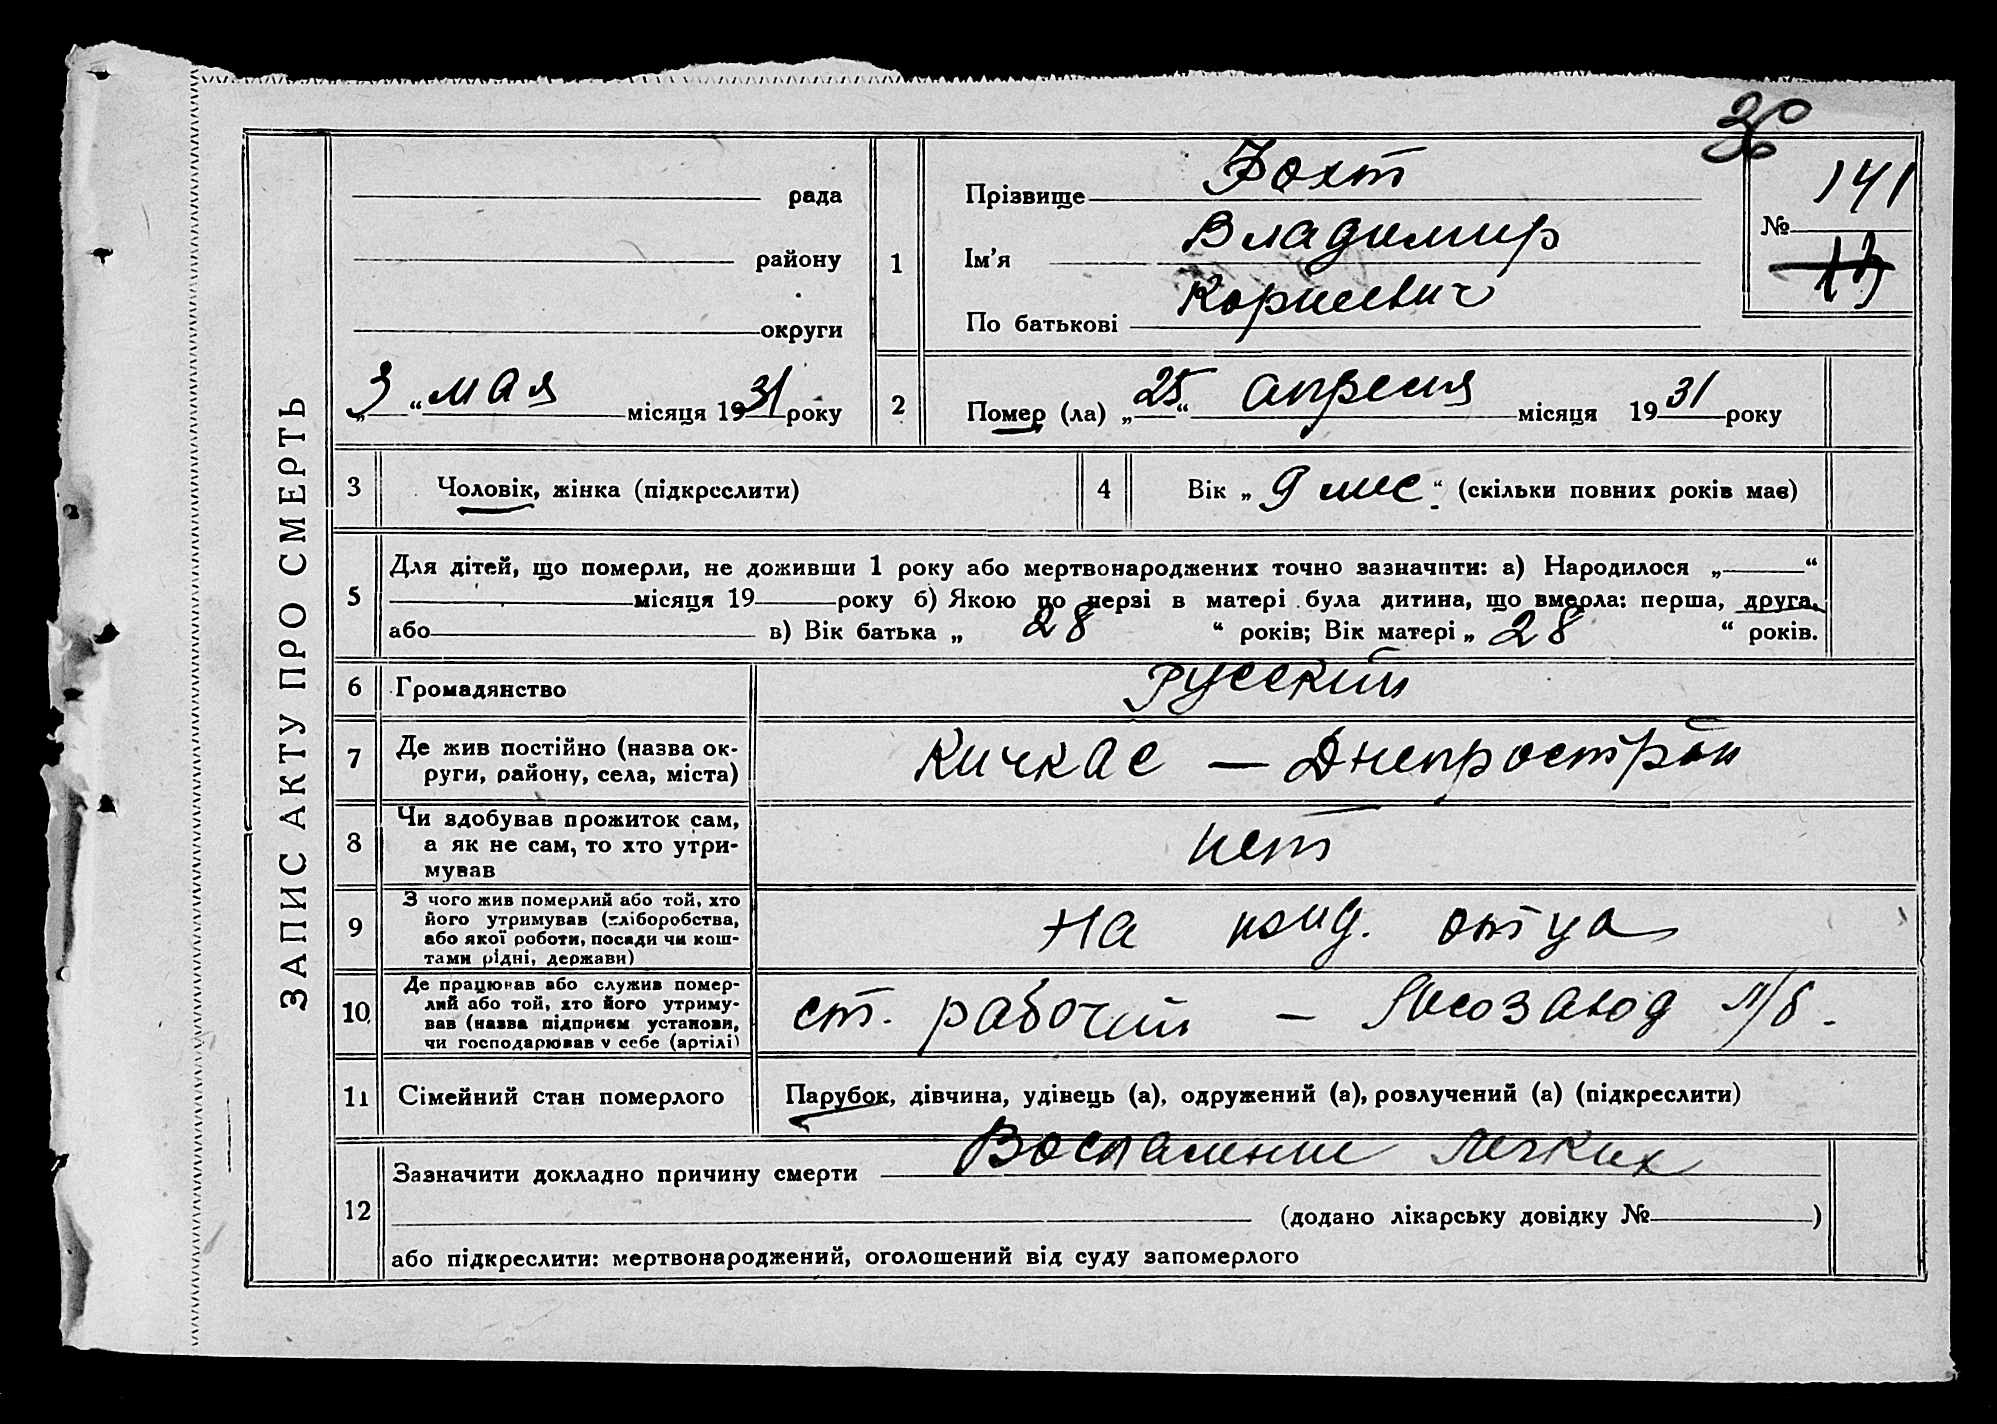 ЗАПИС АКТУ ПРО СМЕРТЬ
рада
району
округи
„3“ мая місяця 1931 року
1
Прізвище Фохт
Ім’я Владимир
По батькові Корнеевич
№ 141
13
2
Помер (ла) „25“ апреля місяця 1931 року
3
Чоловік, жінка (підкреслити)
4
Вік „9 мес“ (скільки повних років має)
5
Для дітей, що померли, не доживши 1 року або мертвонароджених точно зазначити: а) Народилося „ “
місяця 19 року б) Якою по черзі в матері була дитина, що вмерла: перша, друга,
або в) Вік батька „28“ років; Вік матері „28“ років.
6
Громадянство
Русский
7
Де жив постійно (назва ок-
руги, району, села, міста)
Кичкас — Днепрострой
8
Чи здобував прожиток сам,
а як не сам, то хто утри-
мував
нет
9
З чого жив померлий або той, хто
його утримував (хліборобства,
або якої роботи, посади чи кош-
тами рідні, держави)
На ижд. отца
10
Де працював або служив помер-
лий або той, хто його утриму-
вав (назва підприєм установи,
чи господарював у себе (артілі)
ст. рабочий – Лесозавод л/б.
11
Сімейний стан померлого
Парубок, дівчина, удівець (а), одружений (а), розлучений (а) (підкреслити)
12
Зазначити докладно причину смерти Воспаление легких
(додано лікарську довідку № )
або підкреслити: мертвонароджений, оголошений від суду запомерлого